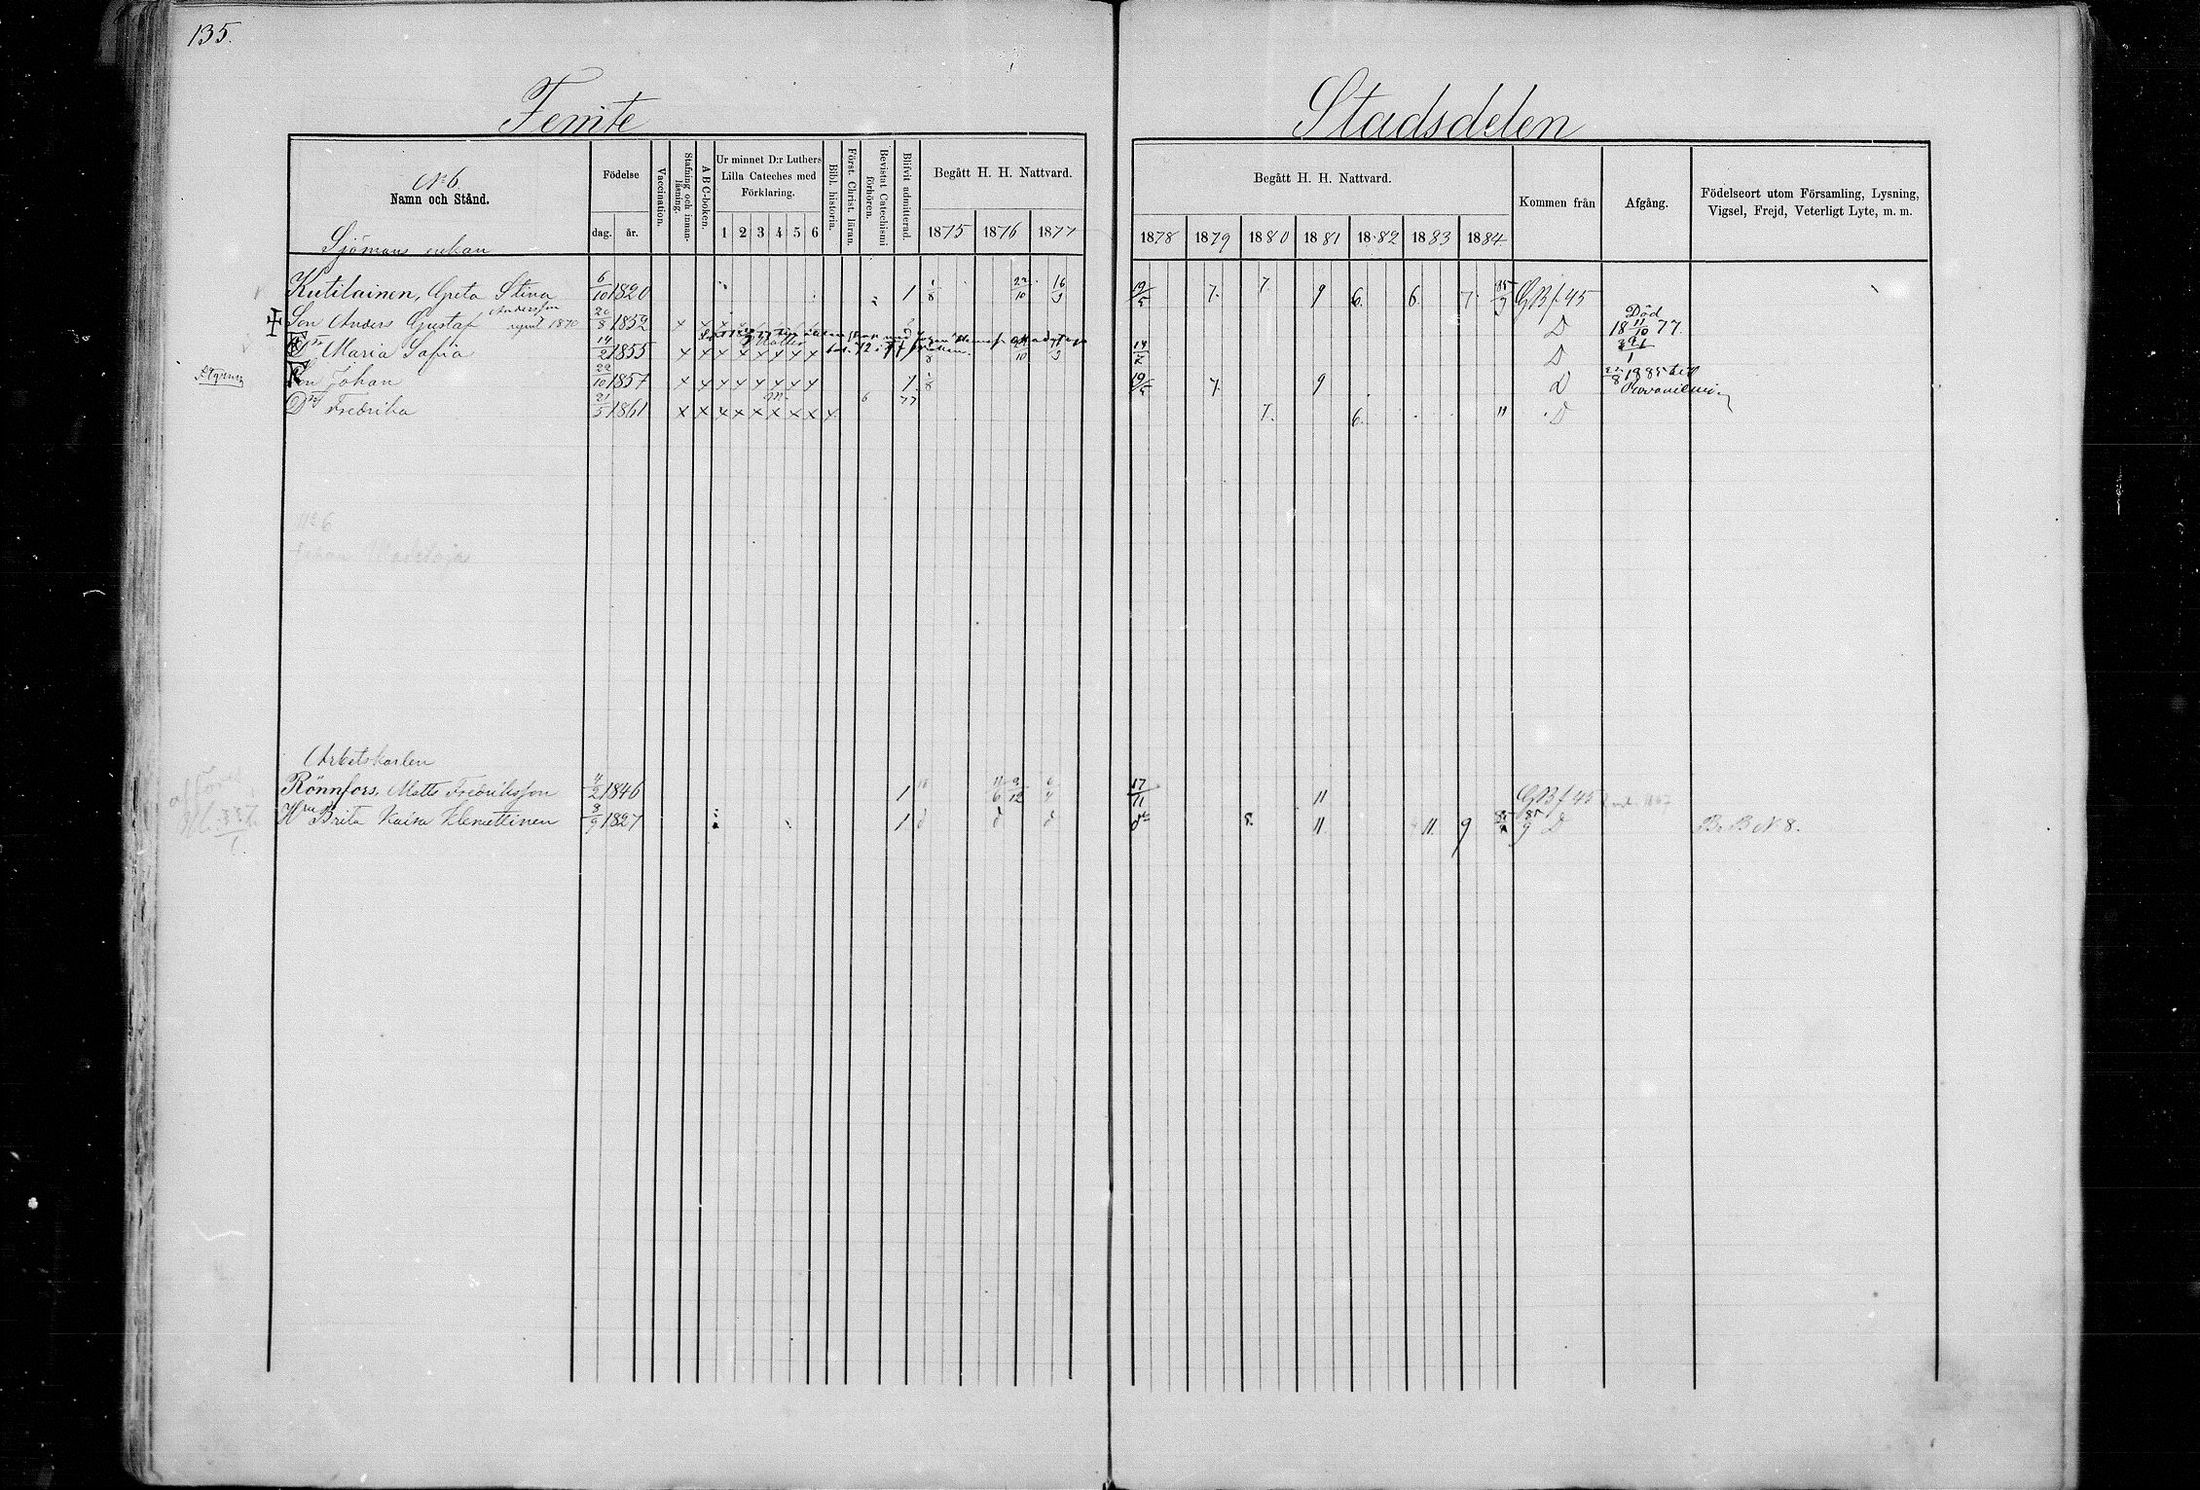 135.
Femte Stadsdelen
No 6.
Namn och Stånd.
Födelse
dag. år.
Vaccination.
Stafning och innanläsning.
A B C-boken.
Ur minnet D:r Luthers
Lilla Cateches med
Förklaring.
1 2 3 4 5 6
Bibl. historia.
Först. Christ. läran.
Bevistat Catechismi förhören.
Blifvit admitterad.
Begått H. H. Nattvard.
1875 1876 1877
Begått H. H. Nattvard.
1878 1879 1880 1881 1882 1883 1884
Kommen från
Afgång.
Födelseort utom Församling, Lysning,
Vigsel, Frejd, Veterligt Lyte, m. m.
Sjömans enkan
Kutilainen, Greta Stina 6/10 1820 1 1/8 22/10 16/9 19/5 7. 7 9 6. 6. 7. 85/9 GBf. 45
Andersson
Son Anders Gustaf rymt 1870 20/8 1852 x x D Död 18 11/10 77.
Dr Maria Safia 14/2 1855 x x x x x x x x D
Son Johan 22/10 1857 x x x x x x x x 1 1/8 19/5 7. 9 D 1885 till
Dr Fredrika 21/5 1861 x x x x x x x x x 6 77 7. 6. " D
No 6
Johan
Arbetskarlen
Rönnfors, Matts Fredriksson 4/2 1846 1 11/6 9/12 17/11 11 GBf 45
Hu Brita Kaisa Klemettinen 8/9 1827 1 8. 11 11. 9 D B.B N 8.